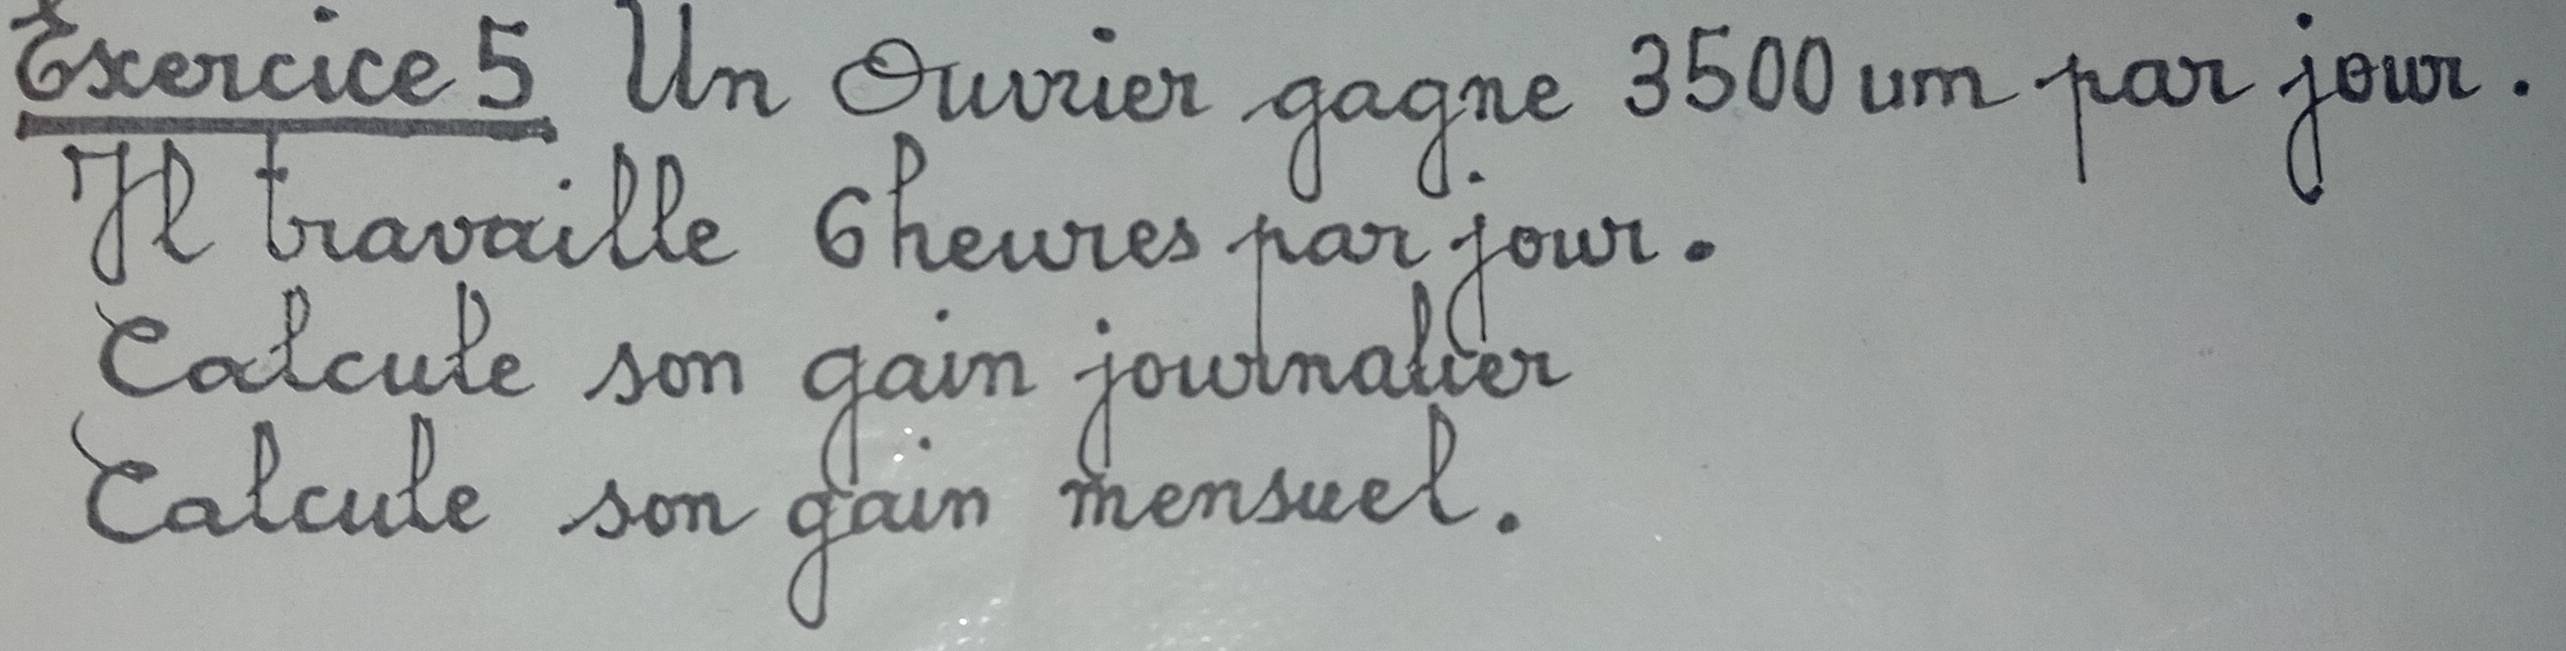 Exercice 5 Un Ouvrier gagne 3500 um par jour.
Il travaille 6 heures par jour.
Calcule son gain journalier
Calcule son gain mensuel.